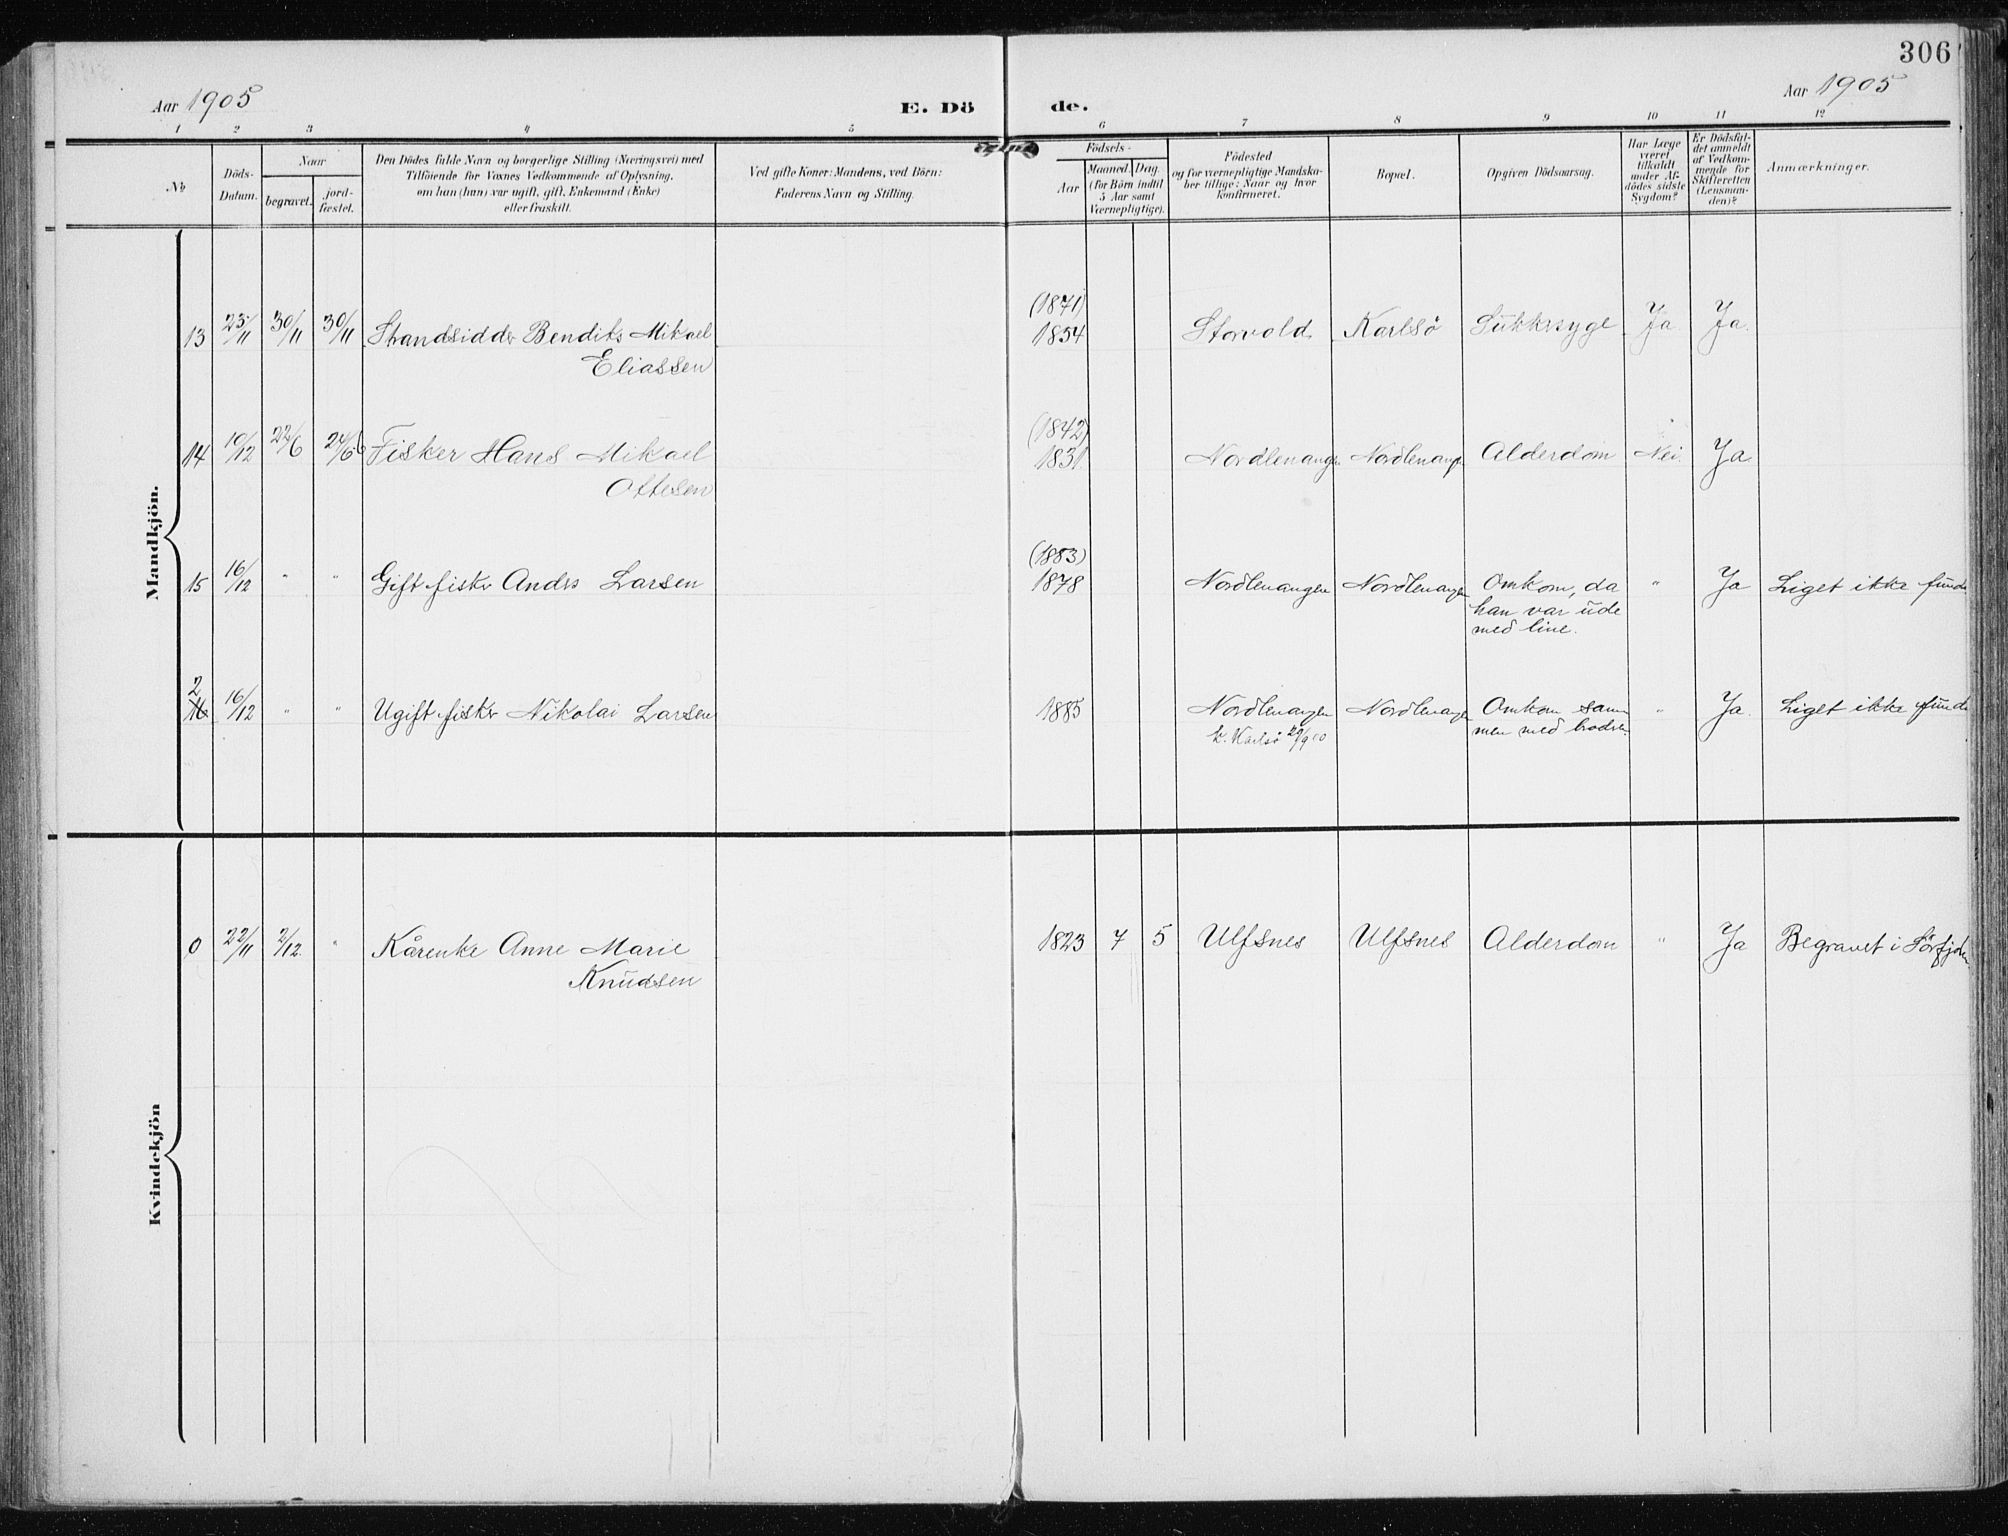 306
Aar 1905
E. Dö
de.
Aar 1905
1 2 3 4 5 6 7 8 9 10 11 12
No
Döds-
Datum.
Naar
begravet.
jord-
fæstet.
Den Dödes fulde Navn og borgerlige Stilling (Næringsvei) med
Tilföiende for Voxnes Vedkommende af Oplysning,
om han (hun) var ugift, gift, Enkemand (Enke)
eller fraskilt.
Ved gifte Koner: Mandens, ved Börn:
Faderens Navn og Stilling.
Födsels-
Aar
Maaned.
Dag.
(for Börn indtil
5 Aar samt
Værnepligtige).
Födested
og for værnepligtige Mandska-
ber tillige: Naar og hvor
konfirmeret.
Bopæl.
Opgiven Dödsaarsag.
Har Læge
været
tilkaldt
under Af-
dödes sidste
Sygdom?
Er Dödsfal-
det anmeldt
af Vedkom-
mende for
Skifteretten
(Lensman-
den)?
Anmærkninger.
Mandkjön.
(1871)
13 25/11 30/11 30/11 Strandsidder Bendiks Mikael 1854 Storvold Karlsö Sukkersyge Ja. Ja.
Eliassen
(1842)
14 10/12 22/6 24/6 Fisker Hans Mikael 1831 Nordlenangen Nordlenangen Alderdom Nei. Ja.
Ottesen
(1883)
15 16/12 " " Gift fisker Anders Larsen 1878 Nordlenangen Nordlenangen Omkom, da " Ja Liget ikke funde
han var ude
med line.
2
16 16/12 " " Ugift fisker Nikolai Larsen 1885 Nordlenangen Nordlenangen Omkom sam- " Ja. Liget ikke funde
k. Karlsö 29/9 00 men med broderen
Kvindekjön
0 22/11 2/12. " Kårenke Anne Marie 1823 7 5 Ulfsnes Ulfsnes Alderdom " Ja Begravet i Sörfjorden
Knudsen